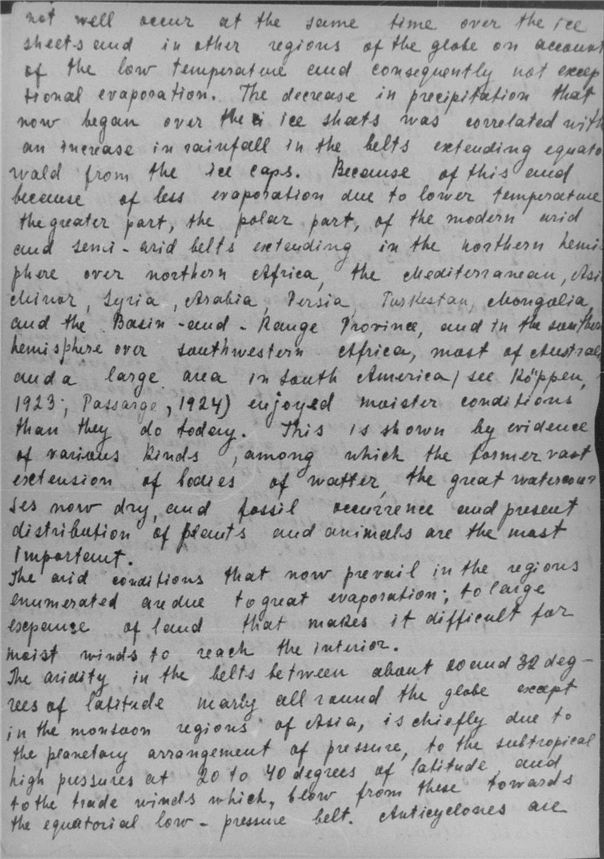 not well occur at the same time over the ice
sheets and in other regions of the globe on account
of the low temperature and consequently not excep
tional evaporation. The decrease in precipitation that
now began over the ice sheets was correlated with
an increase in rainfall in the belts extending equato
wald from the ice caps. Because of this and
because of less evaporation due to lower temperature
the greater part, the polar part, of the modern arid
and semi-arid belts extending in the northern hemi
phere over northern Africa, the Mediterranean, Asi
Minor, Syria, Arabia, Persia, Turkestan, Mongolia,
and the Basin-and-Range Province, and in the southern
hemisphere over southwestern Africa, most of Austral
and a large area in South America (see Köppen,
1923; Passarge, 1924) enjoyed moister conditions
than they do today. This is shown by evidence
of various kinds, among which the former vast
extension of bodies of watter, the great watercour
ses now dry, and fossil occurrence and present
distribution of plants and animals are the most
important.
The arid conditions that now prevail in the regions
enumerated are due to great evaporation; to large
expanse of land that makes it difficult for
moist winds to reach the interior.
The aridity in the belts between about 20 and 32 deg-
rees of latitude nearly all round the globe except
in the monsoon regions of Asia, is chiefly due to
the planetary arrangement of pressure, to the subtropical
high pussures at 20 to 40 degrees of latitude and
to the trade winds which, blow from these towards
the equatorial low-pressure belt. Anticyclones are